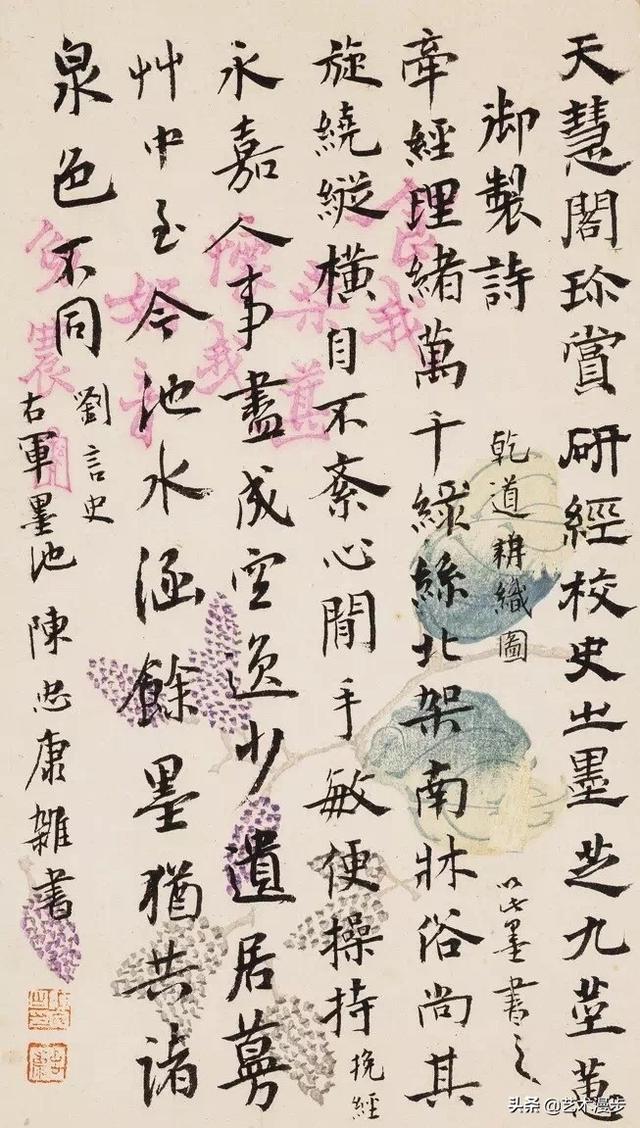 天慧閣珎賞研經校史之墨芝九莖蕙
御製詩 乾道耕織圖 以此墨書之
牽經理緒萬千綠絲北架南牀俗尚其
旋繞縱橫自不紊心閒手敏便操持 挽經
永嘉人事盡成空逸少遺居蔓
艸中至今池水涵餘墨猶共諸
泉色不同 劉言史
右軍墨池 陳忠康雜書
食我
桑
懷我
好音
头条 @艺术漫步